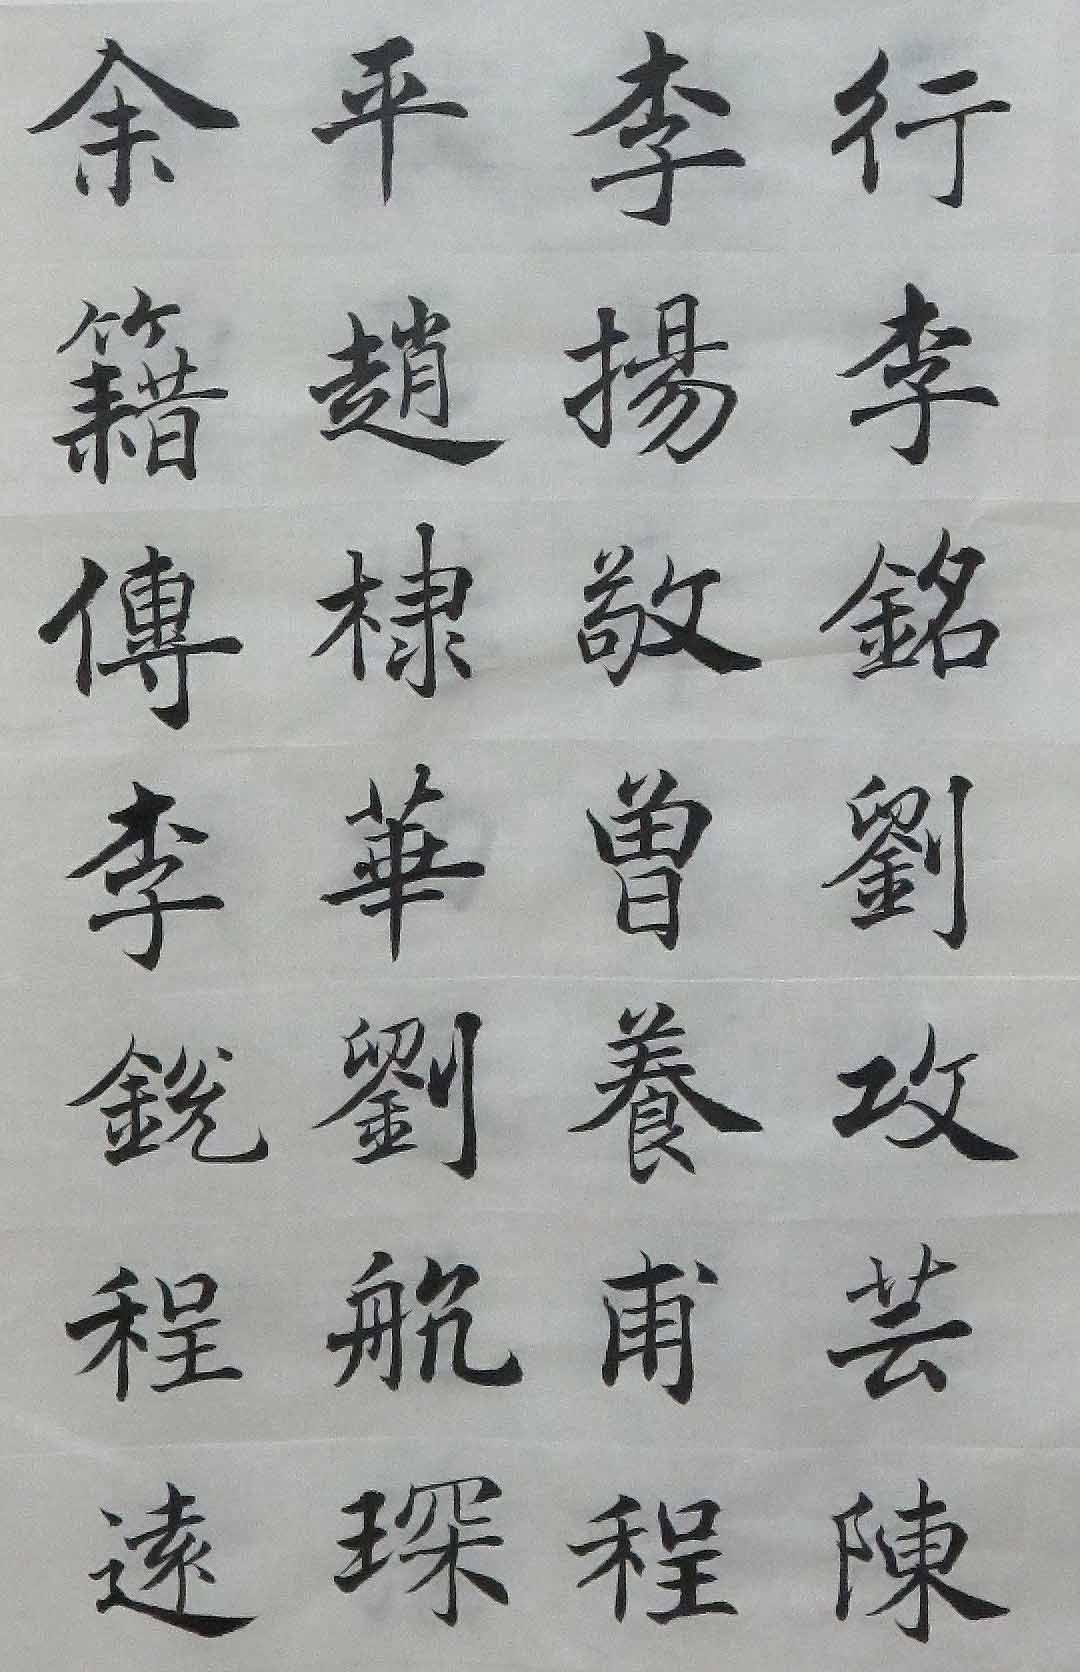 行李銘劉攻芸陳
李揚敬曾養甫程
平趙棣華劉航琛
余籍傳李銳程遠